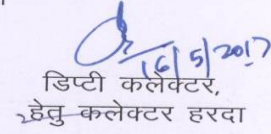 16/5/2017
डिप्टी कलेक्टर,
हेतु कलेक्टर हरदा